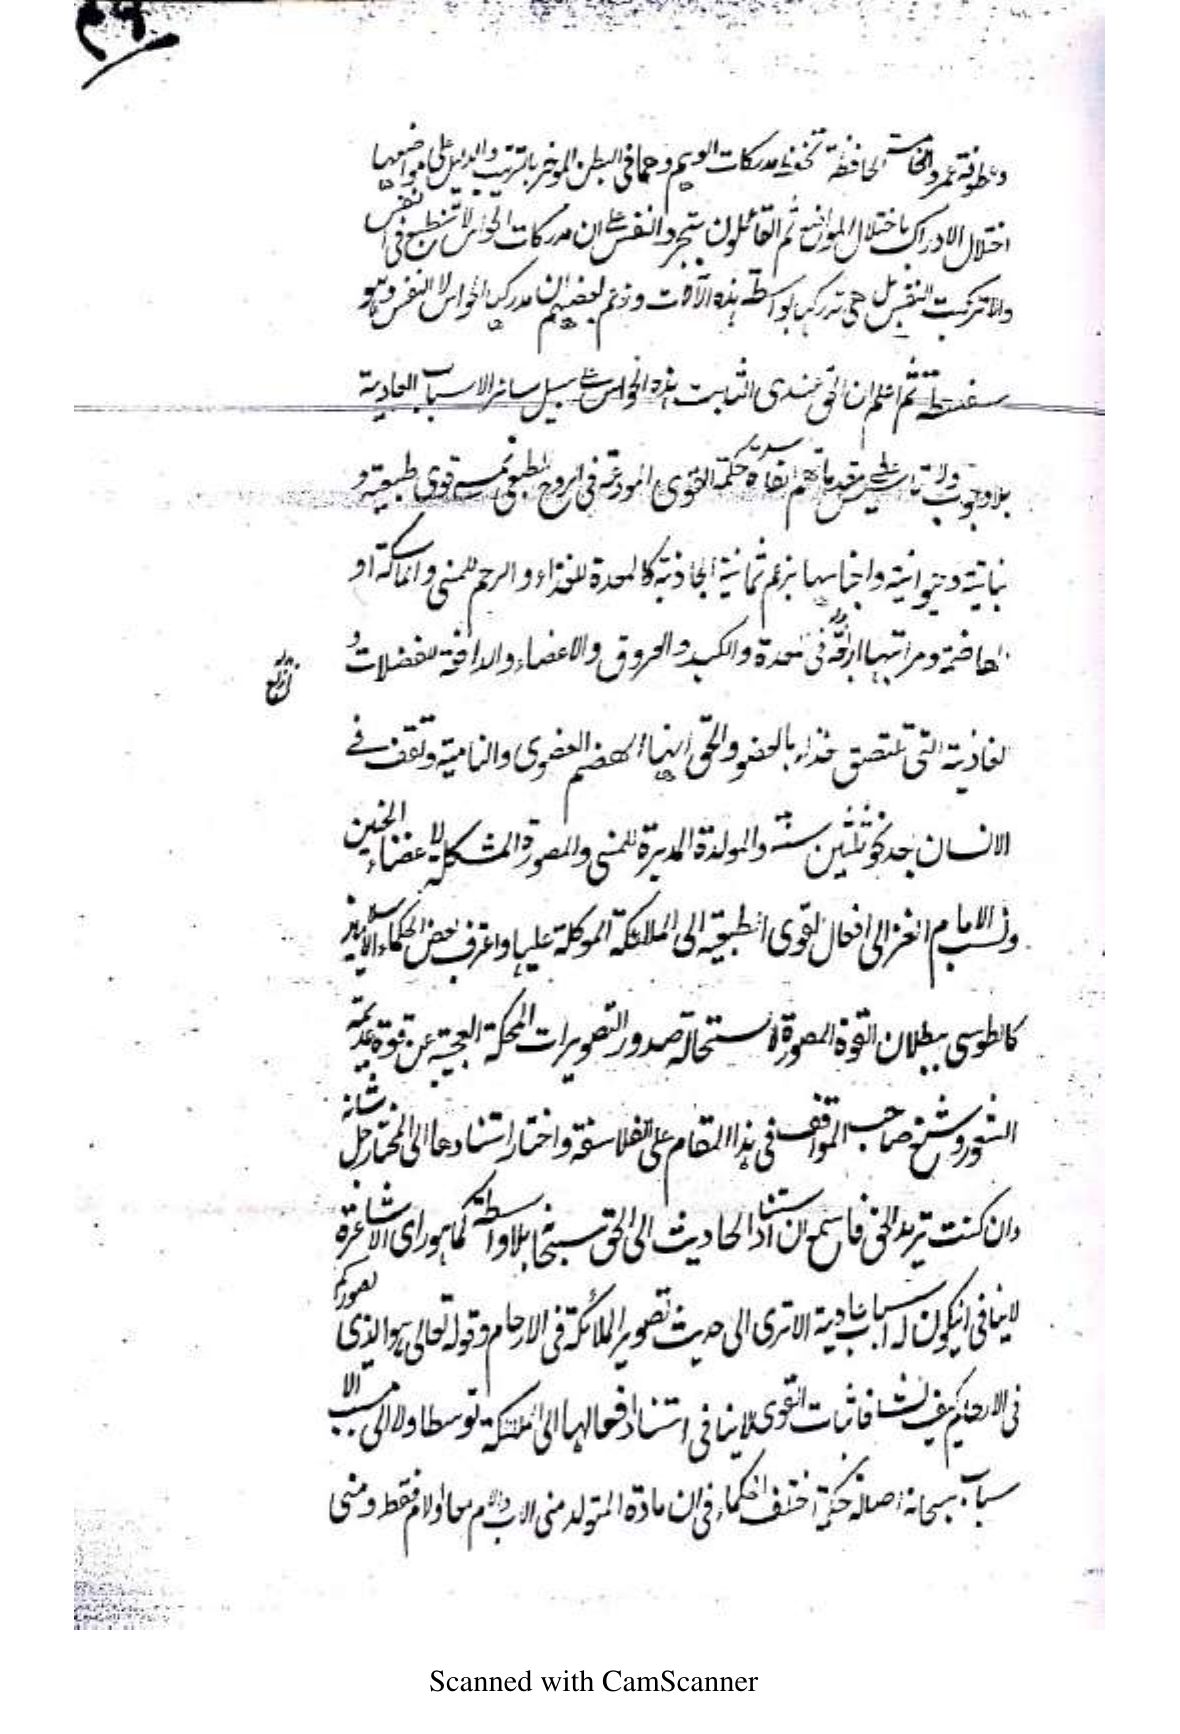 ٣٩
وعطوفة عمرو الخامسة الحافظة تحفظ مدركات الوهم وهما في البطن المؤخر بالترتيب والدليل على مواضعها
اختلال الادراك باختلال المواضع ثم القائلون بتجرد النفس على ان مدركات الحواس لا تنطبع في النفس
والا تركبت النفس بل هي تدركها بواسطة هذه الآلات وزعم بعضهم ان مدركها الحواس لا النفس وهو
سفسطة ثم اعلم ان الحق عندي اثبات هذه الحواس على سبيل سائر الاسباب العادية
بلا وجوب ولا تأسيس على مقدماتهم حكمة القوى المودعة في الروح الطبعي قوى طبعية و
نباتية وحيوانية واجناسها بزعم ثمانية الجاذبة كالمعدة للغذاء والرحم للمني والماسكة او
الهاضمة ومراتبها اربعة في المعدة والكبد والعروق والاعضاء والدافعة للفضلات و
لغاذية التي تلتصق غذاء بالعضو والحق انها الهضم العضوي والنامية وتقف في
الانسان بعد نحو ثلثين سنة والمولدة المدبرة للمني والمصورة المشكلة لاعضاء الجنين
ونسب الامام الغزالي افعال القوى الطبعية الى الملئكة الموكلة عليها واعترف بعض الحكماء
كالطوسي ببطلان القوة المصورة لاستحالة صدور التصويرات المحكمة العجيبة عن قوة عديمة
الشعور وشنع صاحب المواقف في هذا المقام على الفلاسفة واختار استنادها الى المختار جل شانه
وان كنت تريد الحق فاسمع ان استناد الحاديث الى الحق سبحانه بلا واسطة كما هو راى الاشاعرة
لا ينافي ان يكون له اسباب عادية الا ترى الى حديث تصوير الملائكة في الارحام وقوله تعالى هو الذي يصوركم
في الارحام كيف يشاء فاثبات القوى لا ينافي استناد افعالها الى الملئكة توسطا ولا الى مسبب الا
سباب سبحانه اصالة حكمة اختلف الحكماء في ان مادة المتولد مني الاب والام معا او الام فقط ومني